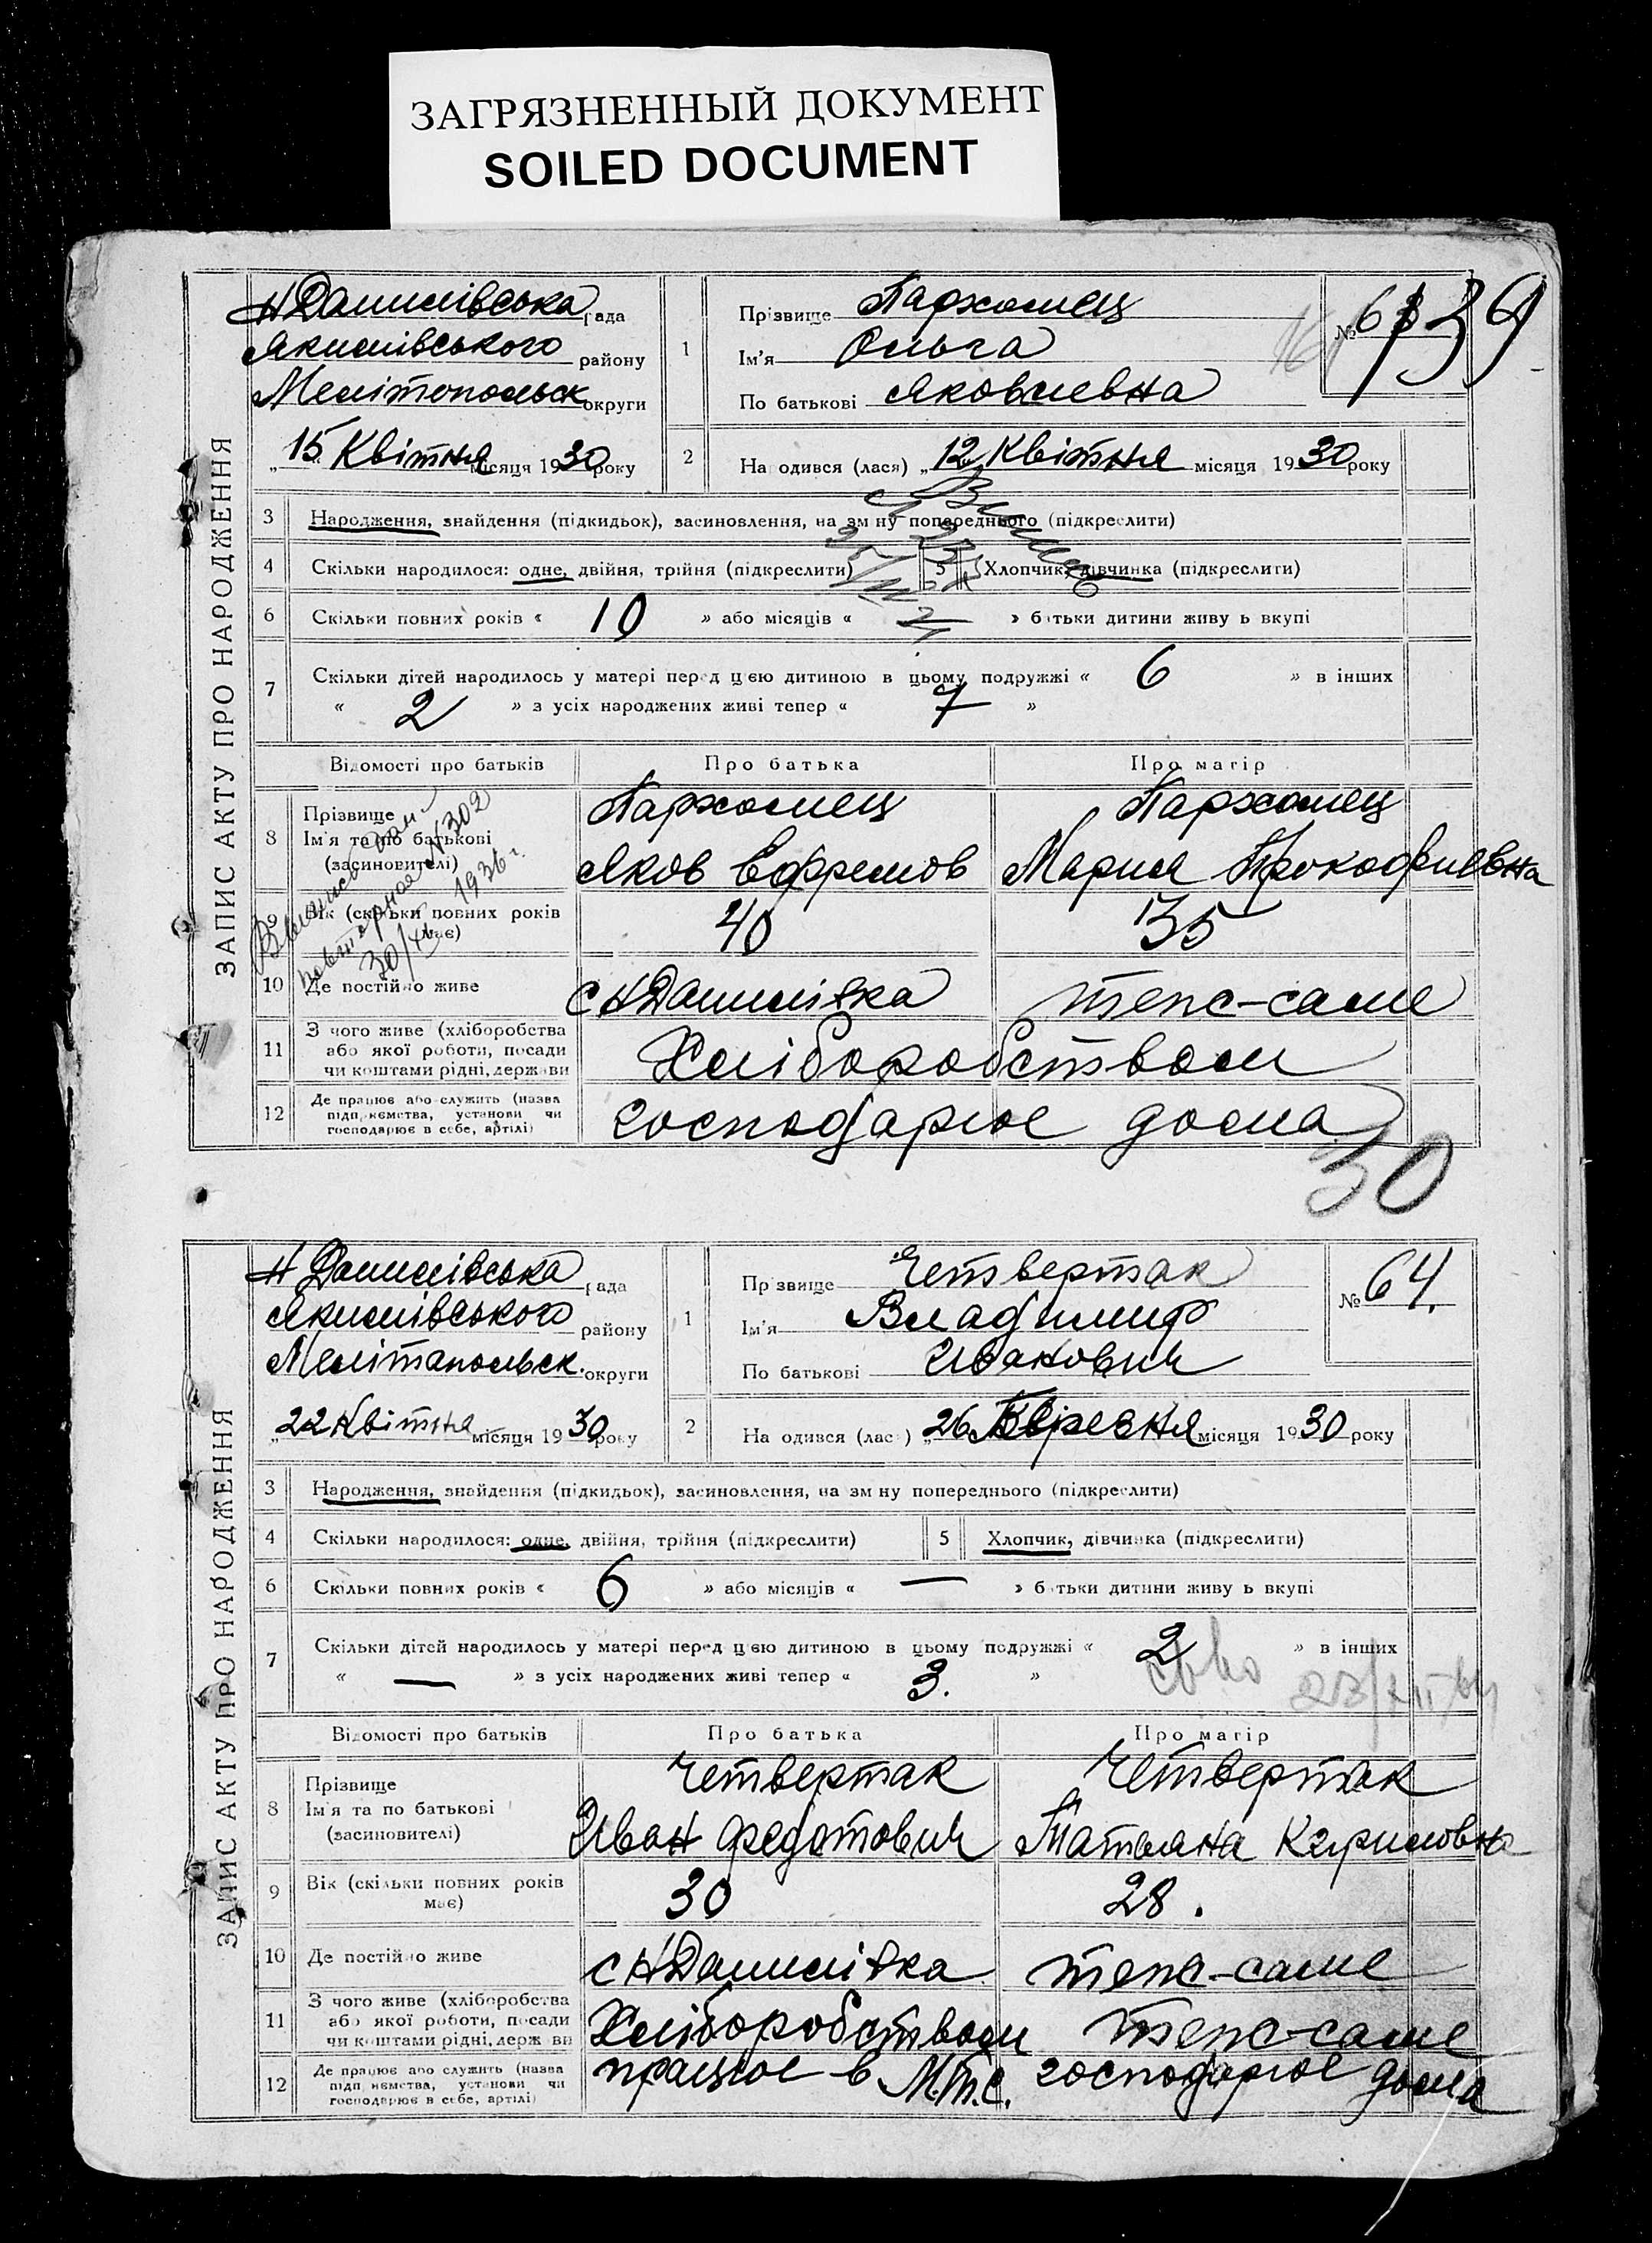 ЗАГРЯЗНЕННЫЙ ДОКУМЕНТ
SOILED DOCUMENT
ЗАПИС АКТУ ПРО НАРОДЖЕННЯ
Н Данилівська рада
Якимівського району
Мелітопольск округи
„15 Квітня місяця 1930 року
1 Прізвище Пархомец
Ім'я Ольга
По батькові Яковлевна
№ 63
39
2 На одився (лася) „12 Квітня місяця 1930 року
3 Народження, знайдення (підкидьок), засиновлення, на зм ну попереднього (підкреслити)
4 Скільки народилося: одне, двійня, трійня (підкреслити)
5 Хлопчик, дівчинка (підкреслити)
6 Скільки повних років « 10 » або місяців « » б тьки дитини живу ь вкупі
7 Скільки дітей народилось у матері перед цією дитиною в цьому подружжі « 6 » в інших
« 2 » з усіх народжених живі тепер « 7 »
Відомості про батьків Про батька Про матір
8 Прізвище
Ім'я та по батькові
(засиновителі)
Пархомец
Яков Ефремов
Пархомец
Мария Прокофиевна
повторное №302
1936 г.
9 Вік (скільки повних років має) 40 35
10 Де постійно живе с НДанилівка теж-саме
11 З чого живе (хліборобства
або якої роботи, посади
чи коштами рідні, держави
Хліборобством
12 Де працює або служить (назва
підприємства, установи чи
господарює в себе, артілі)
господарює дома
30
ЗАПИС АКТУ ПРО НАРОДЖЕННЯ
Н Данилівська рада
Якимівського району
Мелітапольск. округи
„22 Квітня місяця 1930 року
1 Пр звище Четвертак
Ім'я Владимир
По батькові Иванович
№ 64.
2 На одився (лас ) „26 Березня місяця 1930 року
3 Народження, знайдення (підкидьок), засиновлення, на зм ну попереднього (підкреслити)
4 Скільки народилося: одне, двійня, трійня (підкреслити)
5 Хлопчик, дівчинка (підкреслити)
6 Скільки повних років « 6 » або місяців « — » б тьки дитини живу ь вкупі
7 Скільки дітей народилось у матері перед цією дитиною в цьому подружжі « 2 » в інших
« — » з усіх народжених живі тепер « 3. »
Відомості про батьків Про батька Про матір
8 Прізвище
Ім'я та по батькові
(засиновителі)
Четвертак
Иван Федотович
Четвертак
Татьяна Кириловна
9 Вік (скільки повних років має) 30 28.
10 Де постійно живе с НДанилівка теж-саме
11 З чого живе (хліборобства
або якої роботи, посади
чи коштами рідні, держ ви
Хліборобством теж-саме
12 Де працює або служить (назва
підприємства, установи чи
господарює в себе, артілі)
працює в М.Т.С. господарює дома